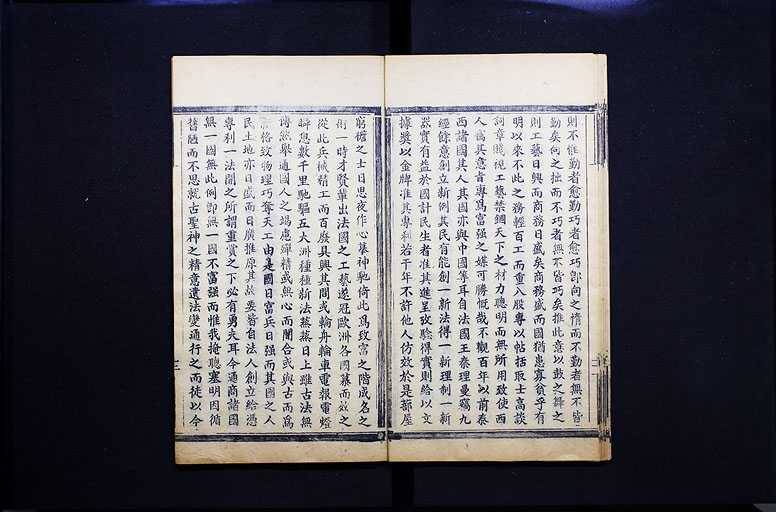 則不惟勤者愈勤巧者愈巧卽向之惰而不勤者無不皆
勤矣向之拙而不巧者無不皆巧矣推此意以鼓之舞之
則工藝日興而商務日盛矣商務盛而國猶患寡貧乎有
明以來不此之務輕百工而重入股專以帖括取士高談
詞章賤視工藝禁錮天下之材力聰明而無所用致使西
人竊其意旨專爲富强之媒可勝慨哉不觀百年以前泰
西諸國其人其國亦與中國等耳自法國王泰理曼竊九
經餘意創立新例其民有能創一新法得一新理制一新
器實有益於國計民生者准其進呈攷驗得實則給以文
據獎以金牌准其專利若干年不許他人仿效於是蔀屋
窮檐之士日思夜作心摹神馳倚此爲致富之階成名之
術一時才賢輩出法國之工藝遂冠歐洲各國慕而效之
從此兵械精工而百廢具興其間或輪舟輪車電報電燈
瞬息數千里馳驅五大洲種種新法蒸蒸日上雖古法無
傳然舉通國人之竭慮殫精或無心而闇合或與古而爲
新格致物理巧奪天工由是國日富兵日强而其國之人
民土地亦日盛而日廣推原其故要皆自法人創立給憑
專利一法開之所謂重賞之下必有勇夫耳今通商諸國
無一國無此例卽無一國不富强而惟我掩聰塞明因循
舊陋而不思就古聖神之精意遺法變通行之而徒以今